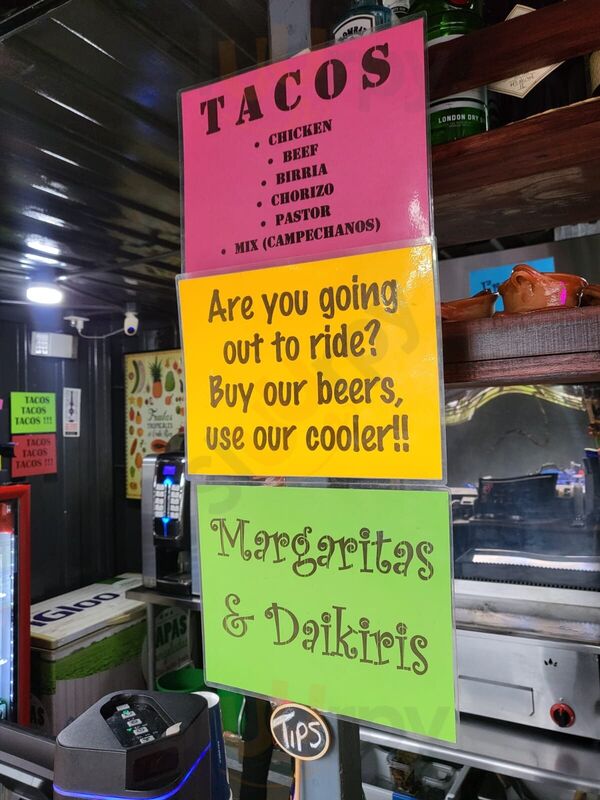 TACOS
• CHICKEN
• BEEF
• BIRRIA
• CHORIZO
• PASTOR
• MIX (CAMPECHANOS)
Are you going
out to ride?
Buy our beers,
use our cooler!!
Margaritas
& Daikiris
TIPS
LONDON DRY
TACOS
TACOS
TACOS !!!
TACOS
TACOS
TACOS !!!
Frutas
TROPICALES
IGLOO